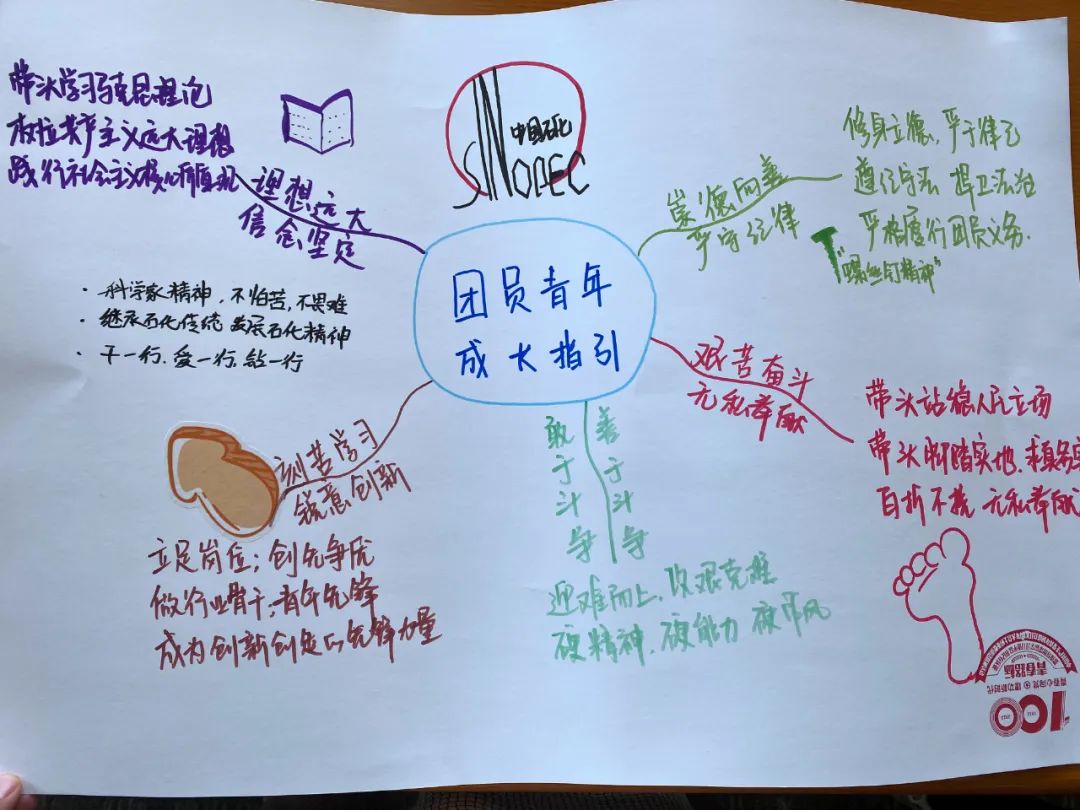 带头学习马克思理论
树立共产主义远大理想
践行社会主义核心价值观
理想远大
信念坚定
SINOPEC
中国石化
崇德向善
严守纪律
修身立德,严于律己
遵纪守法 捍卫法治
严格履行团员义务.
"螺丝钉精神"
团员青年
成长指引
· 科学家精神,不怕苦,不畏难
· 继承石化传统 发展石化精神
· 干一行,爱一行,钻一行
艰苦奋斗
无私奉献
带头站稳人民立场
带头脚踏实地,求真务实
百折不挠 无私奉献
刻苦学习
锐意创新
立足岗位;创先争优
做行业骨干,青年先锋
成为创新创造的先锋力量
敢于斗争
善于斗争
迎难而上,攻艰克难
硬精神,硬能力 硬作风
青春路标
青春心向党 建功新时代
100